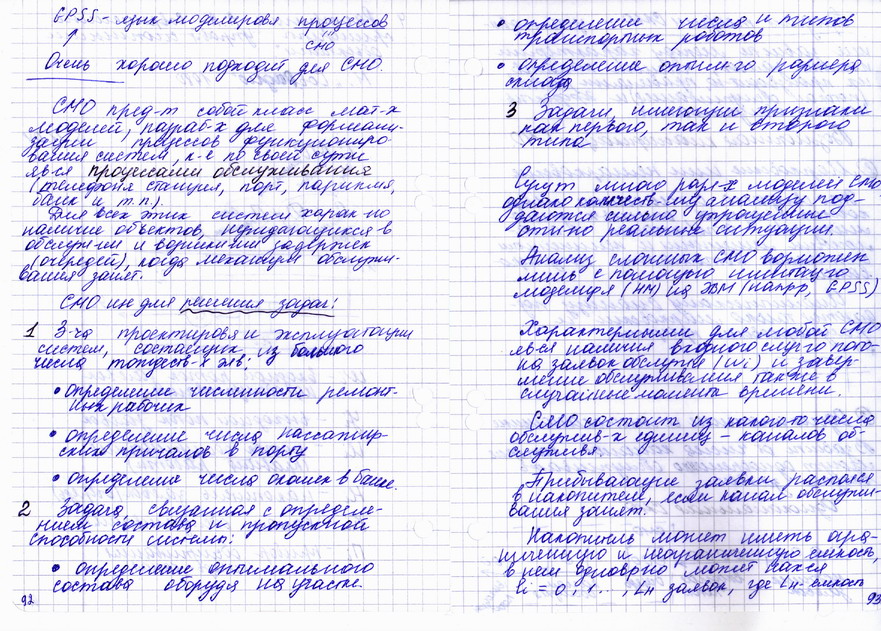 GPSS - язык моделировя процессов
СМО
Очень хорошо подходит для СМО.
СМО пред-т собой класс мат-х
моделей, разраб-х для формали-
зации процессов функциониро-
вания систем, к-е по своей сути
явл-ся процессами обслуживания
(телефонная станция, порт, парикмя,
банк и т.п.).
Для всех этих систем харак-но
наличие объектов, нуждающихся в
обслуж-ии и возникнии задержек
(очередей), когда механизм обслужи-
вания занят.
СМО ин для решения задач:
1 З-ча проектировя и эксплуатации
систем, состоящих из большого
числа тождеств-х элв:
• определение численности ремонт-
ных рабочих
• определение числа пассажир-
ских причалов в порту
• определение числа окошек в банке.
2 Задача, связанная с определе-
нием состава и пропускной
способности системы:
• определение оптимального
состава оборудя на участке.
92
• определение числа и типов
транспортных роботов
• определение оптим-го размера
склада
3 Задачи, имеющии признаки
как первого, так и второго
типа
Сущт много разл-х моделей СМО
однако количеств-му анализу под-
даются сильно упрощенные
отн-но реальные ситуации.
Анализ сложных СМО возможен
лишь с помощью имитац-го
моделия (ИМ) на ЭВМ (напр, GPSS)
Характерными для любой СМО
явл-ся наличия входного случ-го пото-
ка заявок обслужия (wᵢ) и завер-
шение обслуживания также в
случайные момента времени.
СМО состоит из какого-то числа
обслужив-х единиц - каналов об-
служивя.
Прибывающие заявки распол-ся
в накопителе, если канал обслужи-
вания занят.
Накопитель может иметь огра-
ниченную и неограниченную емкость,
в нем одноврно может нах-ся
li = 0, 1 ..., Lн заявок, где Lн - емкость
93